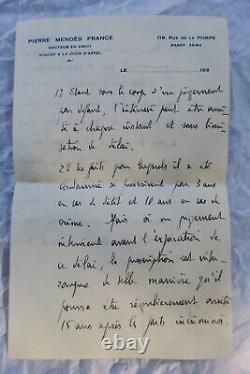 PIERRE MENDÈS FRANCE
DOCTEUR EN DROIT
AVOCAT A LA COUR D'APPEL
118, RUE DE LA POMPE
PASSY
LE 193
1º Étant sous le coup d'un jugement
par défaut, l'intéressé peut être arrêté
à chaque instant et sans limi-
tation de délai.
2º Les faits pour lesquels il a été
condamné se prescrivent par 3 ans
en cas de délit et 10 ans en cas de
crime. Mais si un jugement
intervient avant l'expiration de
ce délai, la prescription est inter-
rompue de telle manière qu'il
pourra être régulièrement arrêté
15 ans après les faits incriminés.